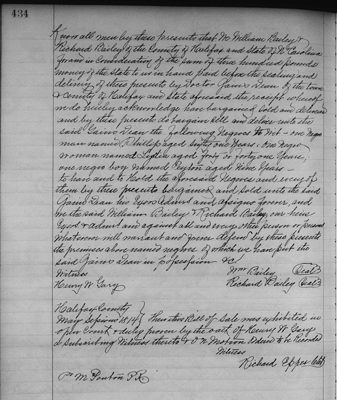 434
Know all men by these presents that We William Bailey &
Richard Bailey of the County of Halifax and State of N Carolina
for and in Consideration of the sum of three hundred pounds
money of the State to us in hand paid before the sealing and
delivery of these presents by Doctor Gavin Dean of the Town
& County of Halifax and State aforesaid the receipt whereof
we do hereby acknowledge have bargained Sold and delivered
and by these presents do bargain sell and deliver unto the
said Gavin Dean the following Negroes to Wit - one negro
man named Phillip aged sixty one years, One negro
woman named aged forty to forty one years,
one negro boy named aged Nine years -
to have and to Hold the aforesaid Negroes and every of
them by these presents bargained and sold unto the said
Gavin Dean his Exors Admrs and assigns forever, and
we the said William Bailey & Richard Bailey our heirs
Exors & Admrs and against all and every other person or persons
whatsoever will warrant and forever defend by these presents
the premises above named negroes of which we have put the
said Gavin Dean in possession &C
Witness Wm Bailey (Seal)
Henry W Gary Richard Bailey (Seal)
Halifax County
May Sessions 1814 } Then this Bill of Sale was exhibited in
open Court & duly proven by the oath of Henry W Gary
a subscribing Witness thereto & On Motion Ordered to be Recorded
Witness
Richard Eppes Clk
Pr M P.R